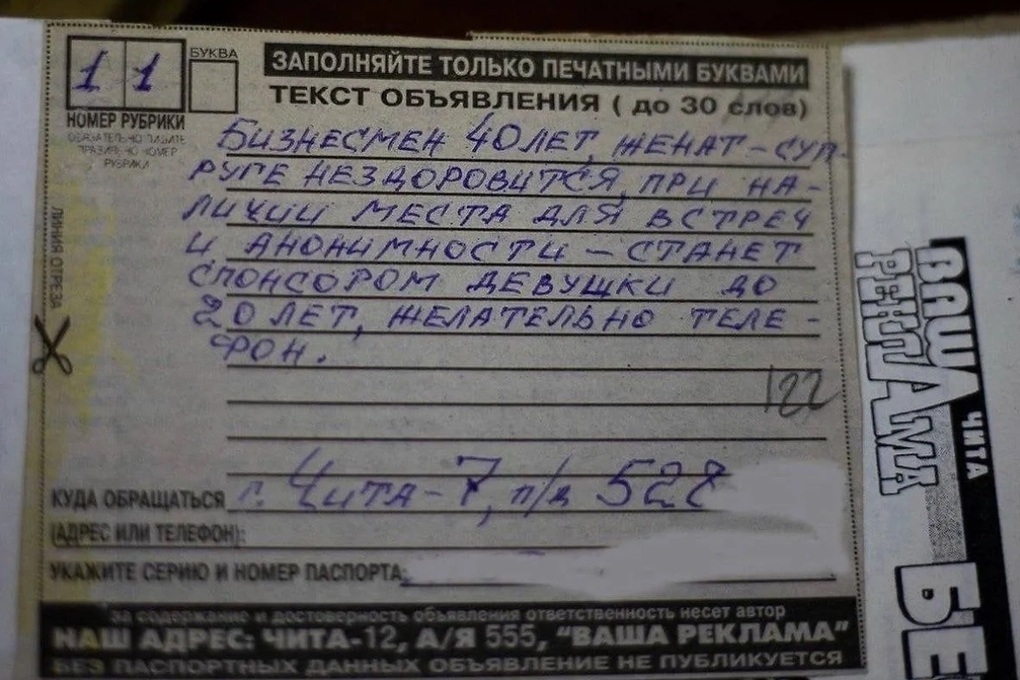 11
БУКВА
ЗАПОЛНЯЙТЕ ТОЛЬКО ПЕЧАТНЫМИ БУКВАМИ
ТЕКСТ ОБЪЯВЛЕНИЯ ( до 30 слов)
НОМЕР РУБРИКИ
ОБЯЗАТЕЛЬНО ПИШИТЕ
ПРАВИЛЬНО НОМЕР
РУБРИКИ
БИЗНЕСМЕН 40 ЛЕТ, ЖЕНАТ – СУП-
РУГЕ НЕЗДОРОВИТСЯ, ПРИ НА-
ЛИЧИИ МЕСТА ДЛЯ ВСТРЕЧ
И АНОНИМНОСТИ – СТАНЕТ
СПОНСОРОМ ДЕВУШКИ ДО
20 ЛЕТ, ЖЕЛАТЕЛЬНО ТЕЛЕ-
ФОН.
ЛИНИЯ ОТРЕЗА
122
КУДА ОБРАЩАТЬСЯ г. Чита-7, п/д 527
(АДРЕС ИЛИ ТЕЛЕФОН):
УКАЖИТЕ СЕРИЮ И НОМЕР ПАСПОРТА:
за содержание и достоверность объявления ответственность несет автор
НАШ АДРЕС: ЧИТА-12, А/Я 555, "ВАША РЕКЛАМА"
БЕЗ ПАСПОРТНЫХ ДАННЫХ ОБЪЯВЛЕНИЕ НЕ ПУБЛИКУЕТСЯ
ВАША
РЕКЛАМА
ЧИТА
БЕ